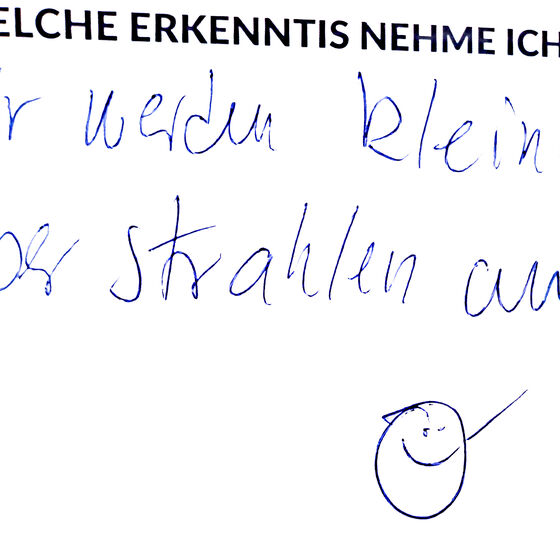 ELCHE ERKENNTIS NEHME ICH
r werden klein
ber strahlen au